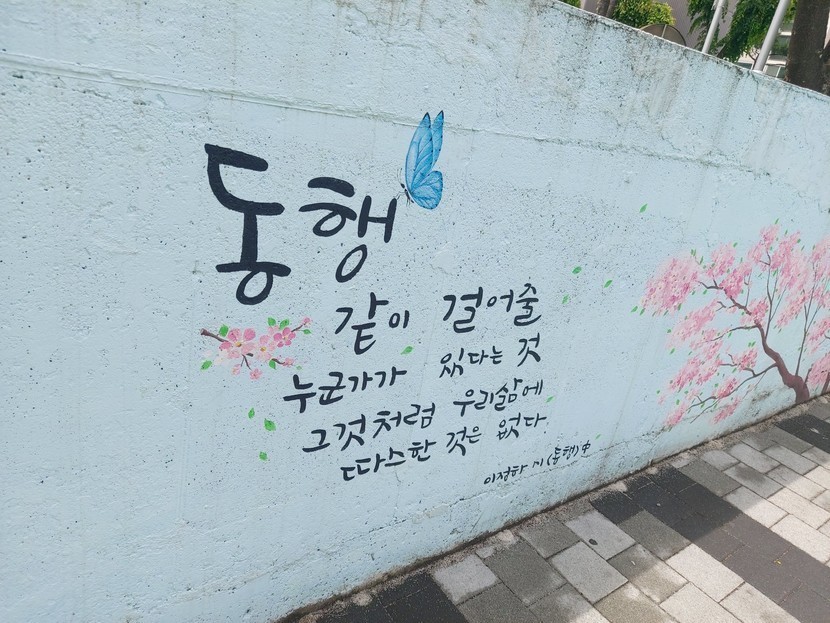 동행
같이 걸어줄
누군가가 있다는 것
그것처럼 우리삶에
따스한 것은 없다.
이정하 시(동행)中